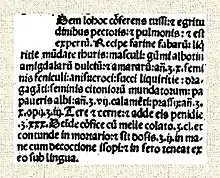 Item lohoc cōferens tussi: ⁊ egritu
dinibus pectoris: ⁊ pulmonis: ⁊ est
expertū. Recipe farine fabarū: liq̄
ritie mūdate thuris: masculi: gūmi albotin
amigdalarū dulciū: ⁊ amararū: añ.ʒ.x. semi
nis feniculi: anisi: croci: succi liquiritie: dra
gagāti: seminis citoniorū mundatorum: pa
paueris albi: añ.ʒ.vij. calamēti: prassij: añ.ʒ
.x. opij.ʒ.iij. Tere ⁊ cerne: ⁊ adde eis penidie
.ʒ.xxx. Deīde cōfice cū melle colato.ʒ.cl. et
contunde in mortario: sit dosis.ʒ.ij. in ma
ne cum decoctione isopi: ⁊ in sero teneat ex
eo sub lingua.